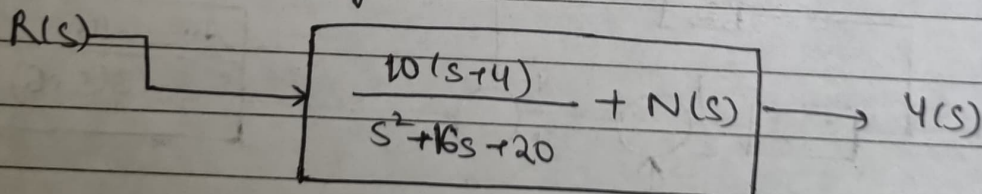 R(s)
10(s+4)
s²+16s+20
+ N(s)
Y(s)